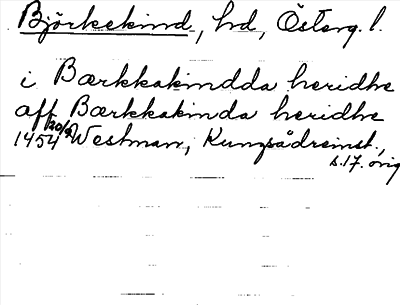 Björkekind, hd, Österg. l.
i Bærkkakindda heridhe
aff Bærkkakinda heridhe
1454 20/2 Westman, Kungsådreinst.,
s. 17. orig